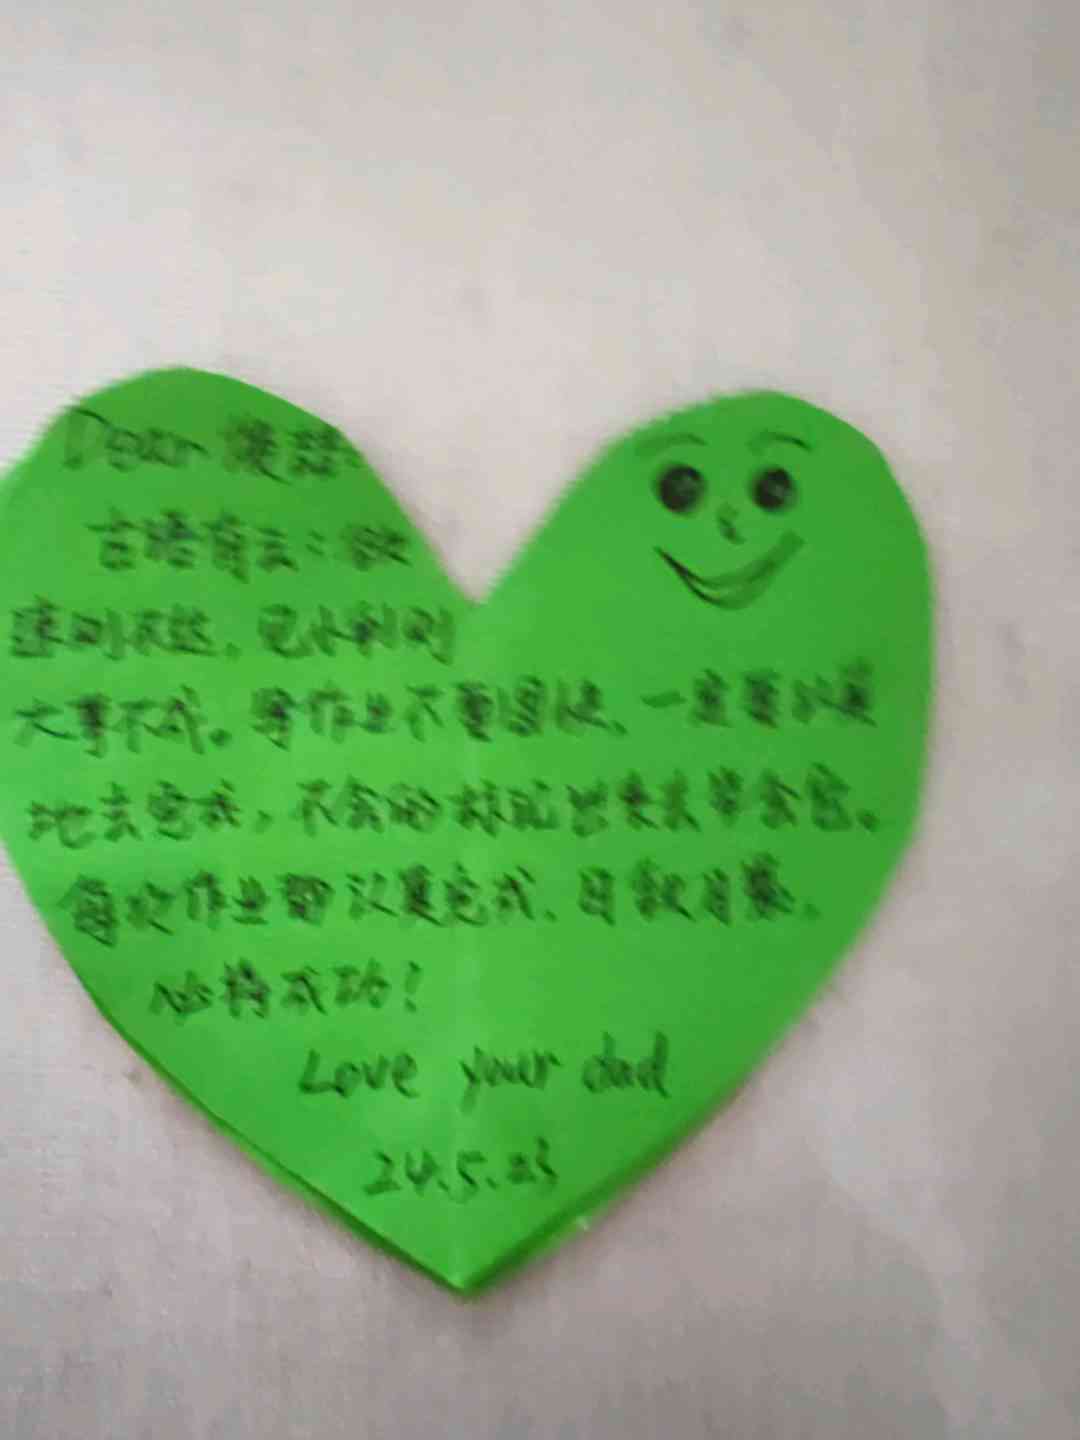 Dear
古语有云：欲
速则不达，见小利则
大事不成。写作业不要图快、一定要认真
地去完成，不会的标记出来去学会它。
每次作业都认真完成、日积月累、
必将成功！
Love your dad
24.5.23